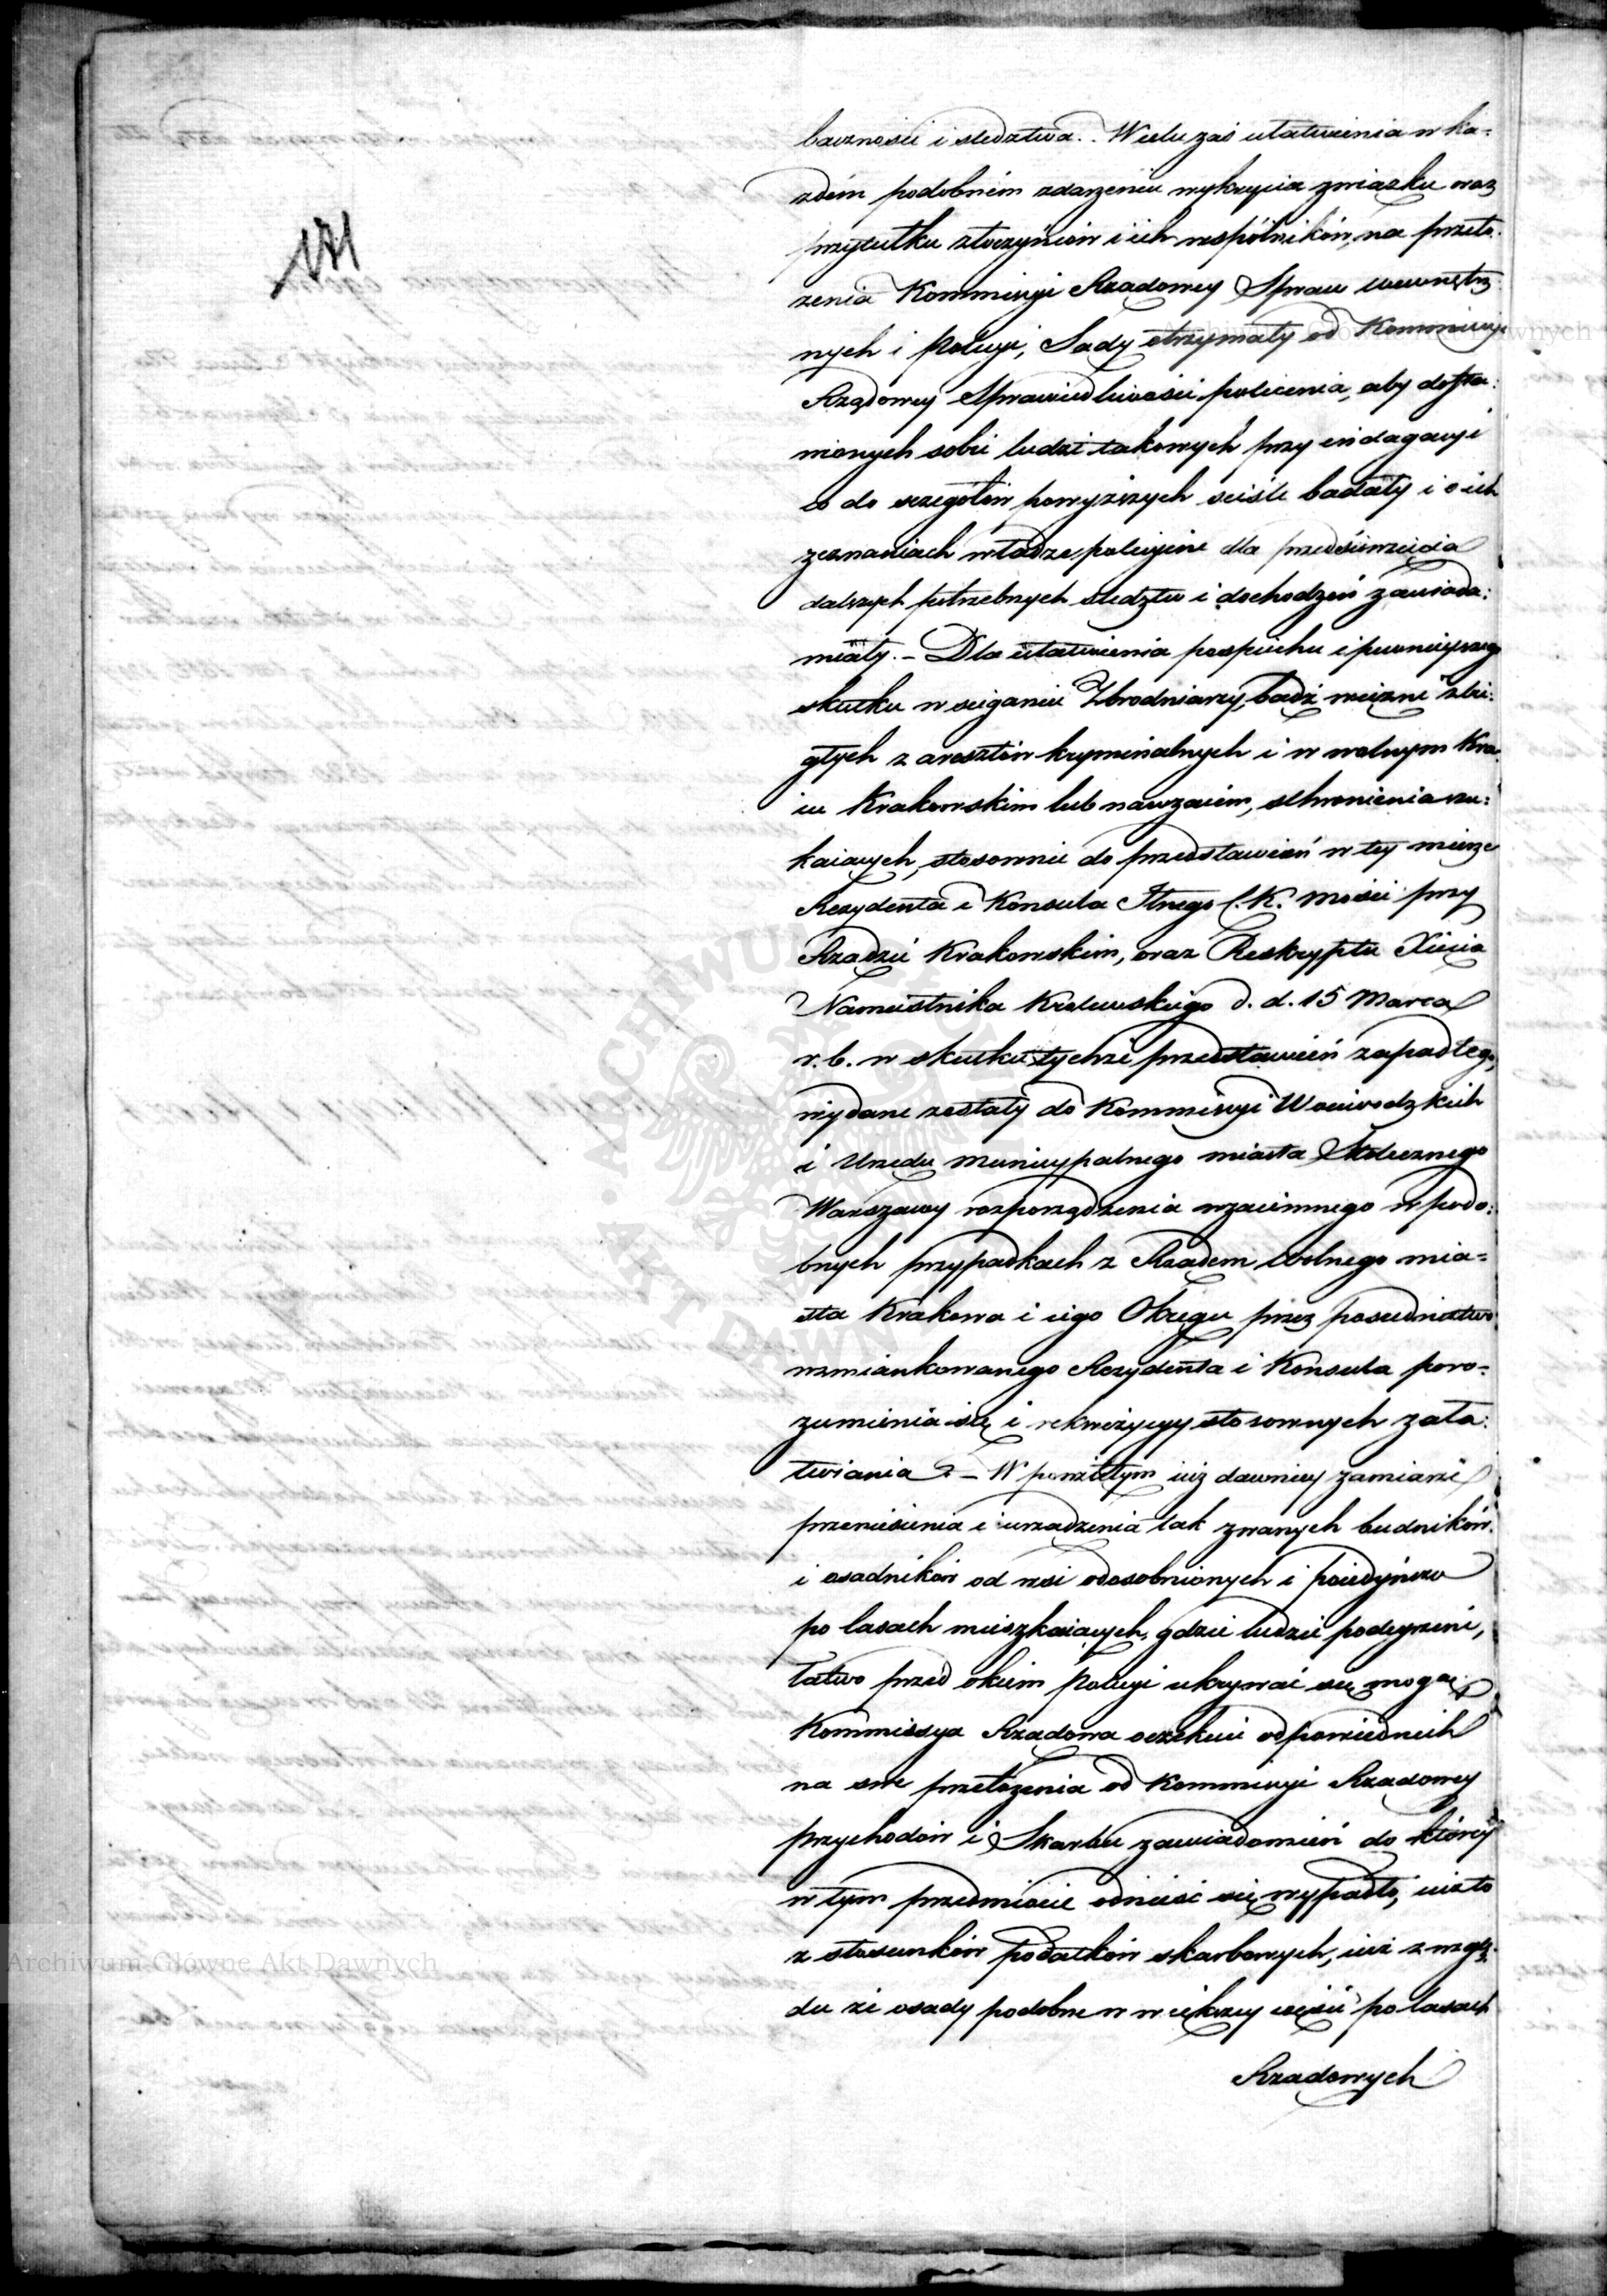 baczności i śledztwa. W celu zaś ułatwienia w ka-
zdém podobném zdarzeniu wykrycia związku oraz
przytułku złoczyńców i ich wspólników, na przeło-
zenia Kommissyi Rządowey Spraw wewnętrz-
nych i Policyi, Sądy otrzymały od Kommissyi
Rządowey Sprawiedliwości polecenia, aby dosta-
wionych sobie ludzi takowych przy indagacyi
co do szczegółów powyższych ściśle badały i o ich
zeznaniach władze policyine dla przedsięwzięcia
dalszych potrzebnych śledztw i dochodzeń zawiada-
miały. – Dla ułatwienia pospiechu i pewnieyszego
skutku w ściganiu Zbrodniarzy, bądź więźni zbie-
głych z aresztów kryminalnych i w wolnym Kra-
iu Krakowskim lub nawzaiem, schronienia szu-
kaiących, stosownie do przedstawień w tey mierze
Rezydenta i Konsula J. K. Mości przy
Rządzie Krakowskim, oraz Reskryptu Xięcia
Namiestnika Królewskiego d. d. 15 Marca
r. b. w skutku tychże przedstawień zapadłego,
wydane zostały do Kommissyi Woiewodzkich
i Urzędu Municypalnego miasta Stołecznego
Warszawy rozporządzenia wzaiemnego w podo-
bnych przypadkach z Rządem wolnego mia-
sta Krakowa i iego Okręgu przez posrednictwo
wzmiankowanego Rezydenta i Konsula poro-
zumienia się i rekwizycyy stosownych zała-
twiania. – W powziętym iuż dawniey zamiarze
przeniesienia i urządzenia tak zwanych budników
i osadników od wsi odosobnionych i poiedyńczo
po lasach mieszkaiących, gdzie ludzie podeyrzeni,
łatwo przed okiem Policyi ukrywać się mogą,
Kommissya Rządowa oczekuie odpowiednich
na swe przełożenia od Kommissyi Rządowey
Przychodów i Skarbu zawiadomień do którey
w tym przedmiocie odnieść się wypadło, iuż to
z stosunków podatków skarbowych, iuż z wzglę-
du że osady podobne w większey części po lasach
Rządowych
Archiwum Główne Akt Dawnych